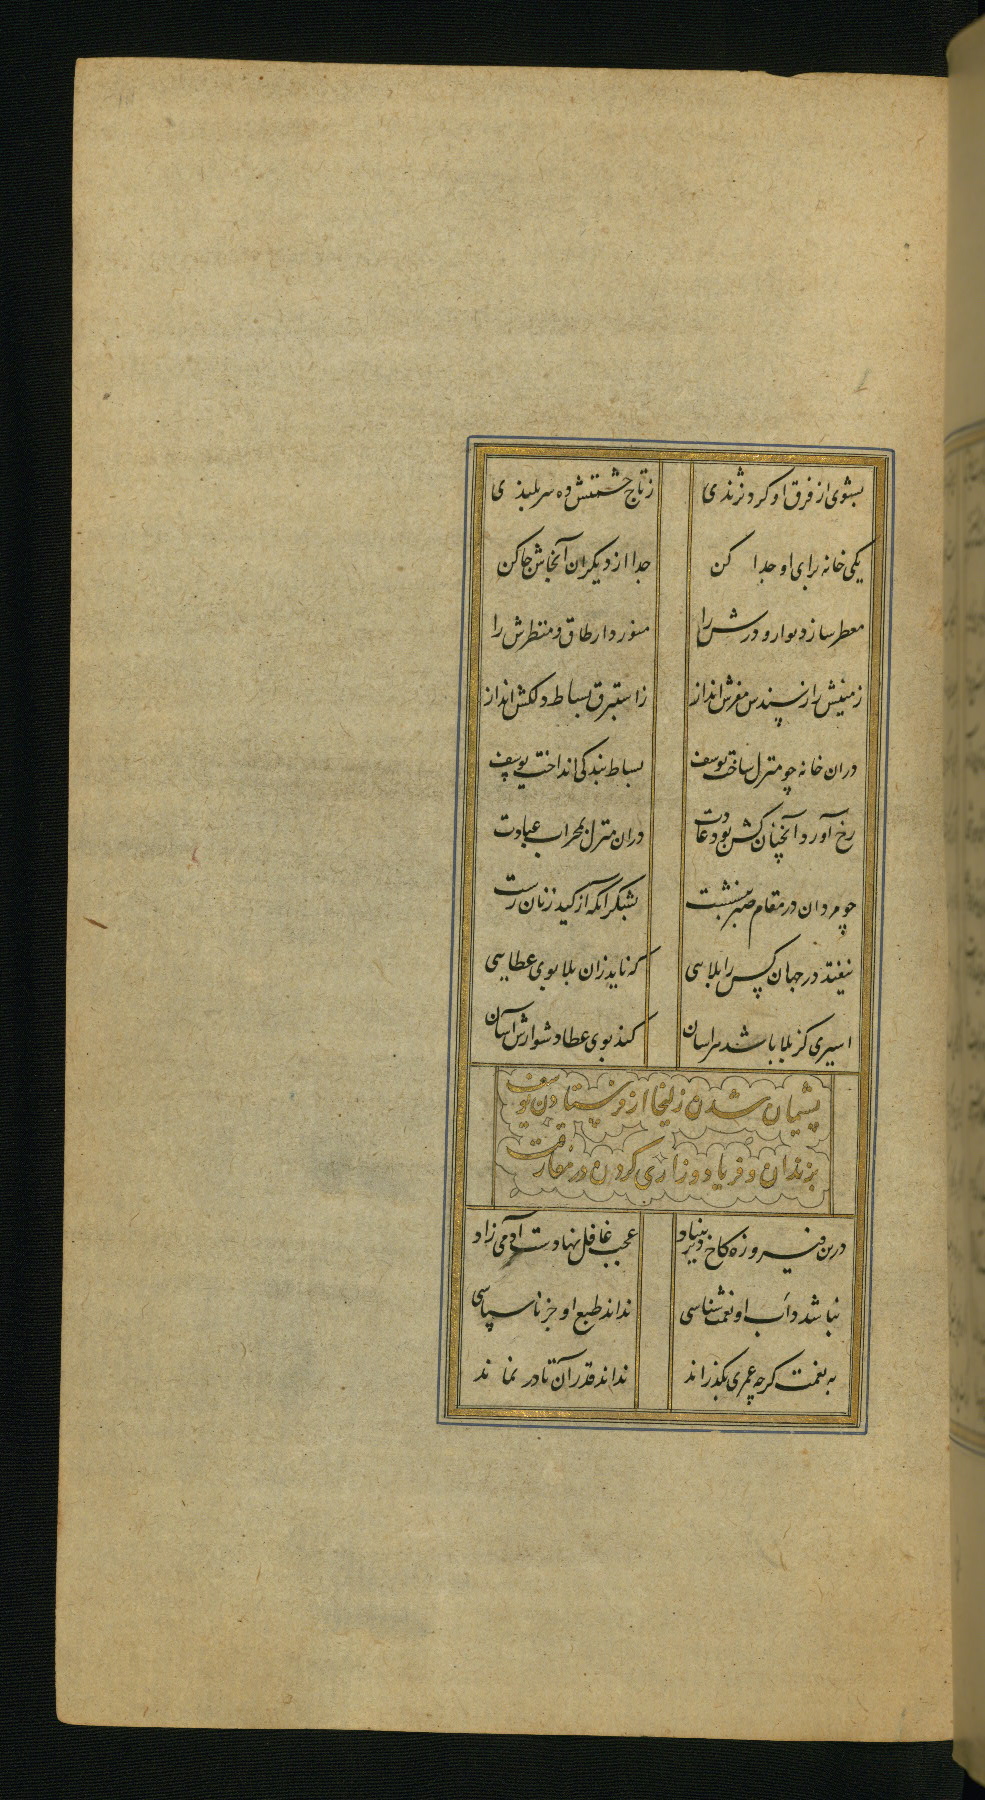 بشوی از فرق او گرد نژندی ز تاج حشمتش ده سربلندی
یکی خانه برای او جدا کن جدا از دیگران آنجاش جا کن
معطر ساز دیوار و درش را منور دار طاق و منظرش را
زمینش را ز سندس مفرش انداز ز استبرق بساط دلکش انداز
دران خانه چو منزل ساخت یوسف بساط بندگی انداخت یوسف
رخ آورد آنچنان کش بود عادت دران منزل بمحراب عبادت
چو مردان در مقام صبر بنشست بشکر آنکه از کید زنان رست
نیفتد در جهان کس را بلایی که ناید زان بلا بوی عطایی
اسیری کز بلا باشد هراسان کند بوی عطا دشوارش آسان
پشیمان شدن زلیخا از فرستادن یوسف
بزندان و فریاد و زاری کردن در مفارقت
درین فیروزه کاخ دیر بنیاد عجب غافل نهادست آدمی زاد
نباشد دأب او نعمت شناسی نداند طبع او جز ناسپاسی
به نعمت گرچه عمری بگذراند نداند قدر آن تا در نماند